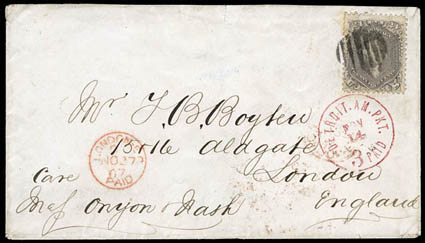 Mr. F. B. Boyten
15 & 16 Aldgate
London
England
Care
Mess Onyon & Nash
LONDON
NO 27
67
PAID
DETROIT. AM. PKT.
NOV
14
3
PAID